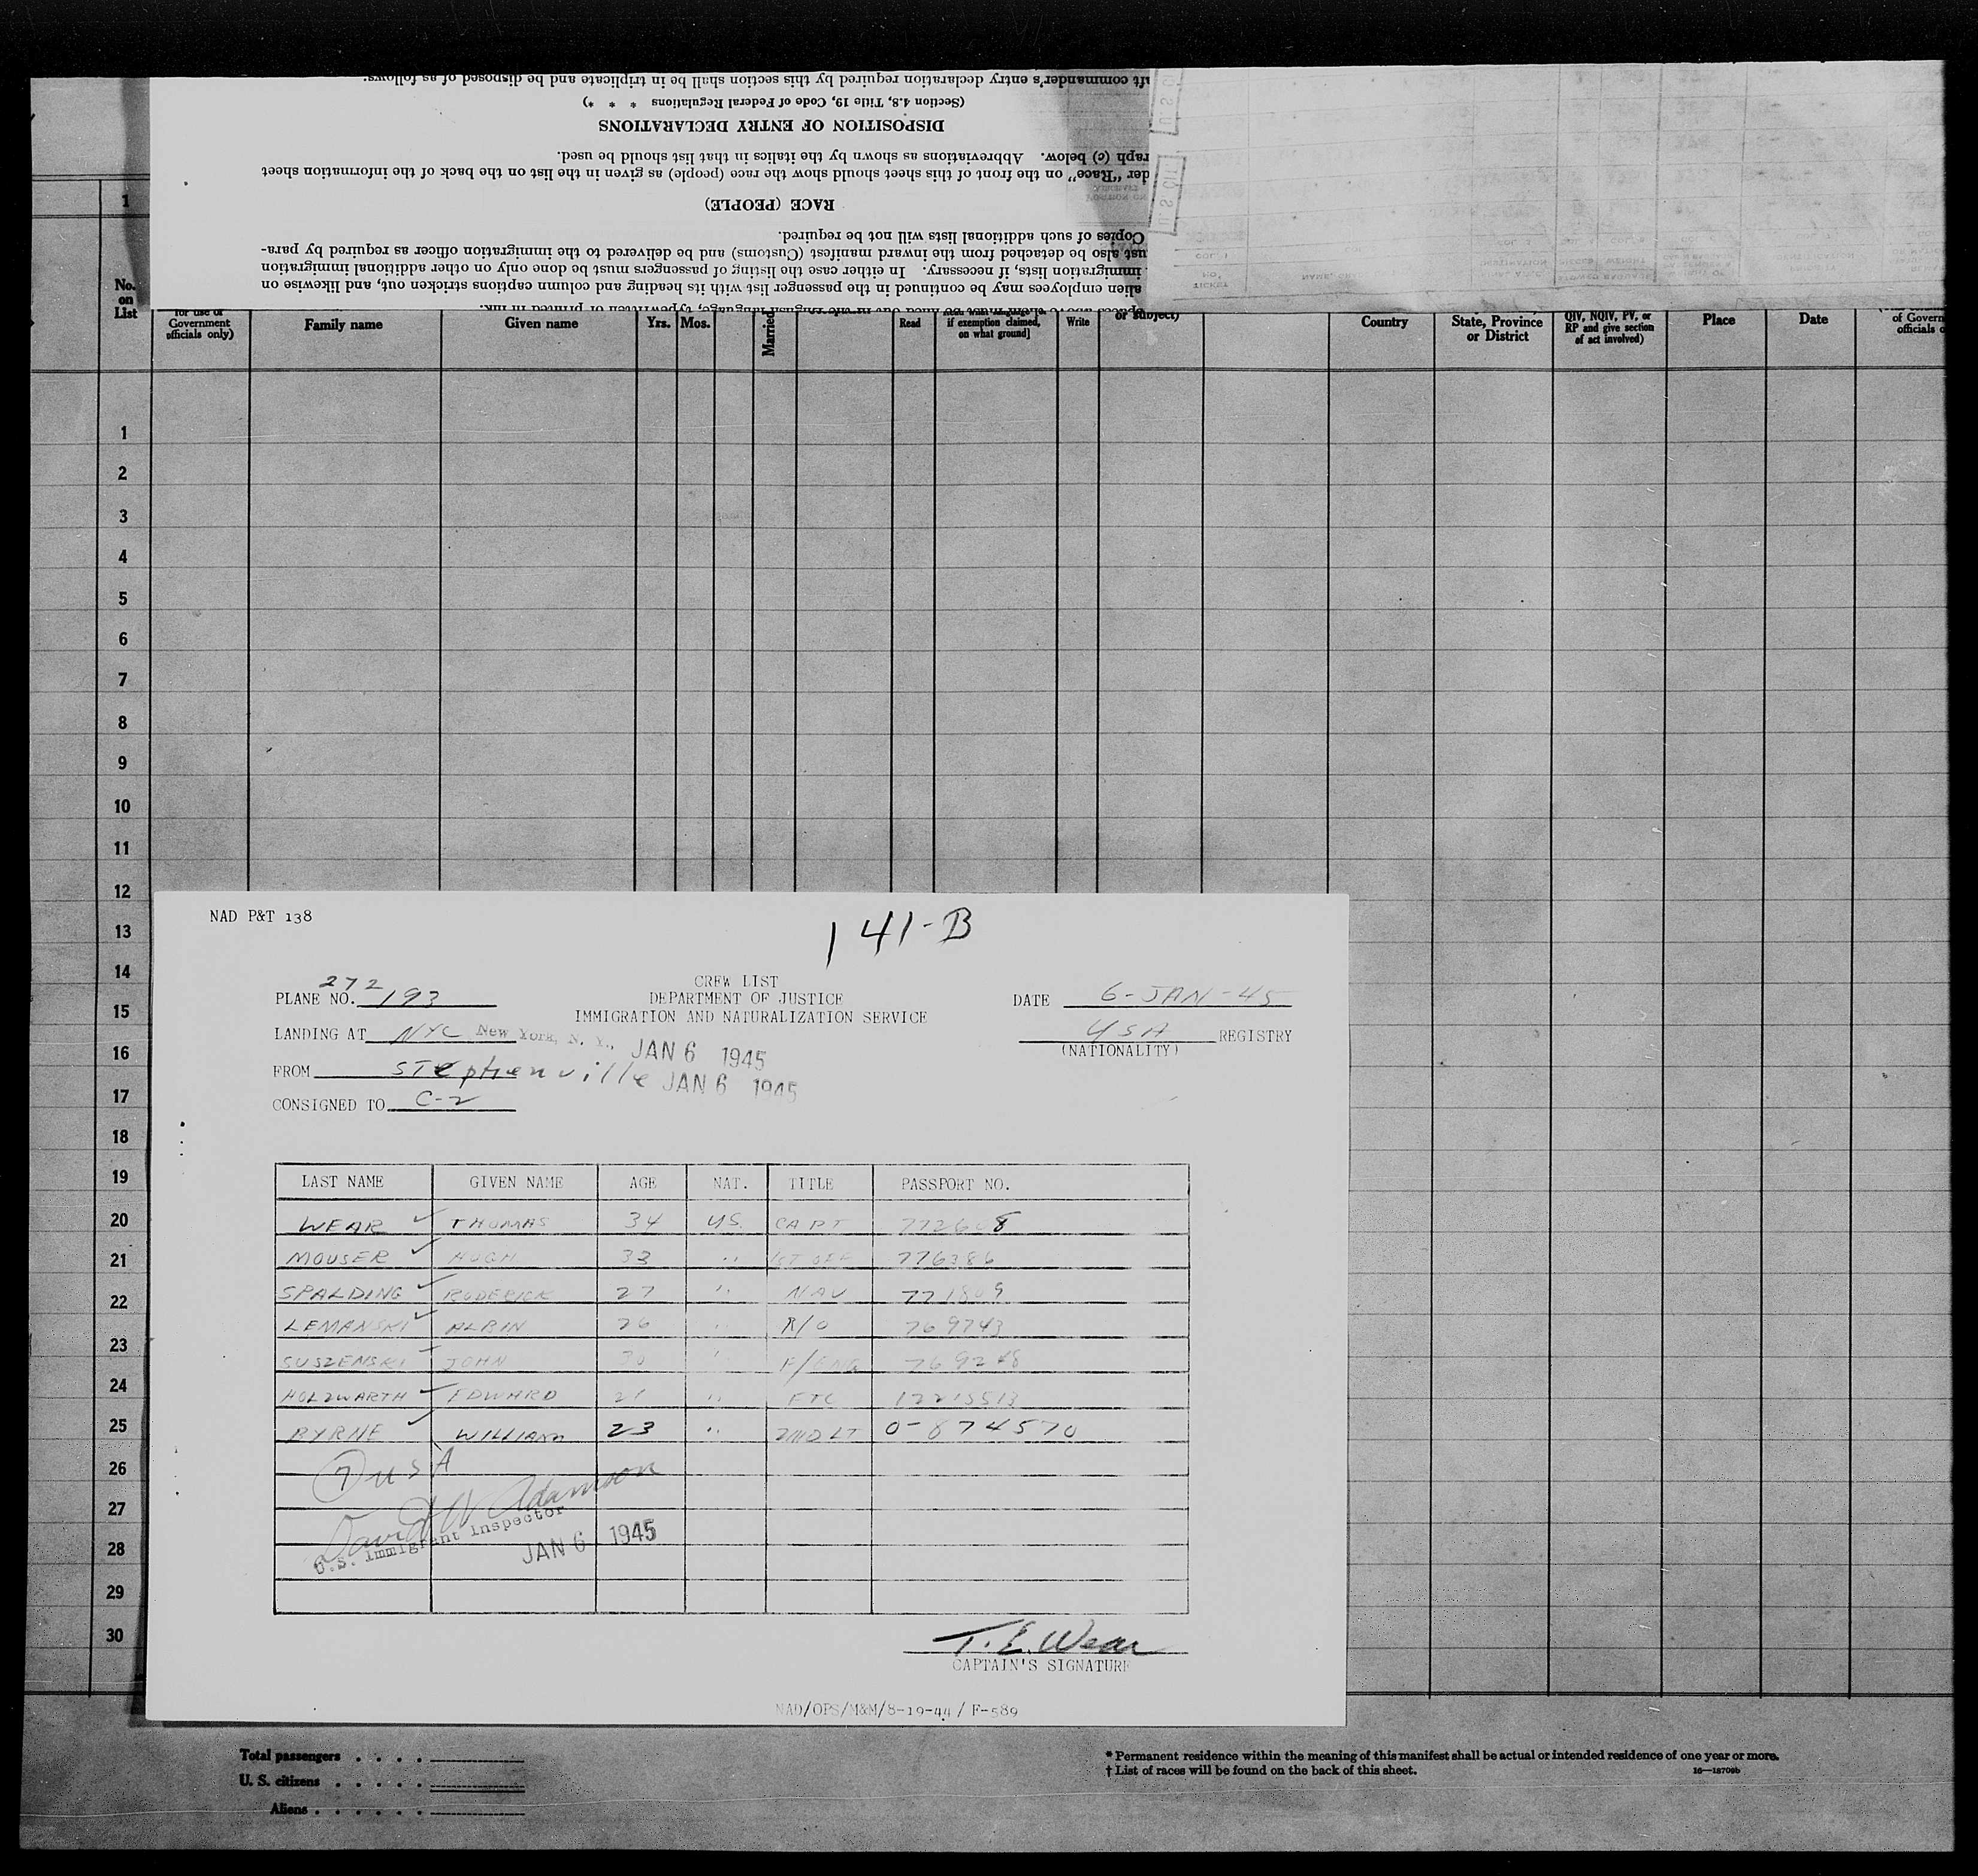 aft commander's entry declaration required by this section shall be in triplicate and be disposed of as follows:
(Section 4.8, Title 19, Code of Federal Regulations * * *)
DISPOSITION OF ENTRY DECLARATIONS
raph (c) below. Abbreviations as shown by the italics in that list should be used.
der "Race" on the front of this sheet should show the race (people) as given in the list on the back of the information sheet
RACE (PEOPLE)
Copies of such additional lists will not be required.
ust also be detached from the inward manifest (Customs) and be delivered to the immigration officer as required by para-
immigration lists, if necessary. In either case the listing of passengers must be done only on other additional immigration
alien employees may be continued in the passenger list with its heading and column captions stricken out, and likewise on
U S CIT
1
No. on List
for use of Government officials only)
Family name
Given name
Yrs. Mos.
Married
Read
if exemption claimed, on what ground]
Write
or subject)
Country
State, Province or District
QIV, NQIV, PV, or RP and give section of act involved)
Place
Date
of Govern
officials o
1
2
3
4
5
6
7
8
9
10
11
12
13
14
15
16
17
18
19
20
21
22
23
24
25
26
27
28
29
30
NAD P&T 138
141-B
CREW LIST
DEPARTMENT OF JUSTICE
IMMIGRATION AND NATURALIZATION SERVICE
PLANE NO. 272193
DATE 6-JAN-45
LANDING AT NYC New York, N. Y., JAN 6 1945
USA REGISTRY
(NATIONALITY)
FROM Stephenville JAN 6 1945
CONSIGNED TO C-2
LAST NAME GIVEN NAME AGE NAT. TITLE PASSPORT NO.
WEAR ✓ THOMAS 34 US. CAPT 772608
MOUSER ✓ HUGH 33 " 1ST OFF 776386
SPALDING ✓ RODERICK 27 " NAV 771809
LEMANSKI ✓ ALBIN 26 " R/O 769743
SUSZENSKI ✓ JOHN 30 " F/ENG 769248
HOLZWARTH ✓ EDWARD 21 " FTC 12215513
BYRNE ✓ WILLIAM 23 " 2ND LT 0-874570
7 USA
David W Adamson
U.S. Immigrant Inspector
JAN 6 1945
T. E. Wear
CAPTAIN'S SIGNATURE
NAD/OPS/M&M/8-19-44/ F-589
Total passengers . . . .
U. S. citizens . . . . .
Aliens . . . . . .
* Permanent residence within the meaning of this manifest shall be actual or intended residence of one year or more.
† List of races will be found on the back of this sheet.
16—18709b